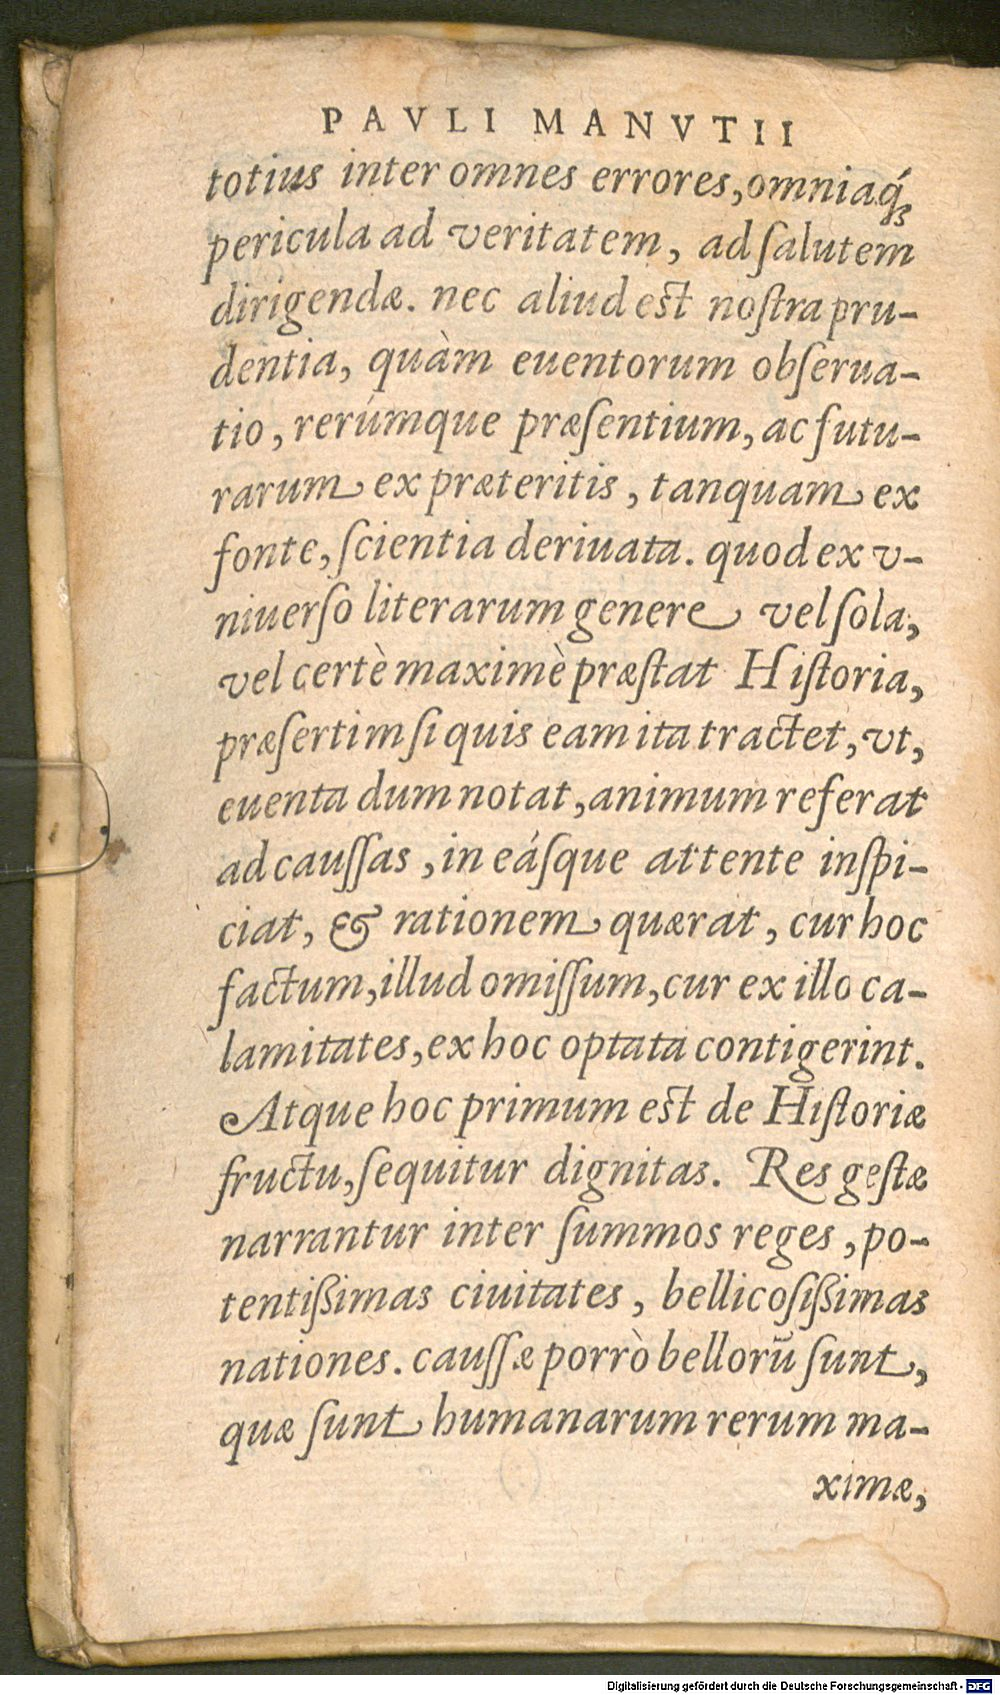 PAVLI MANVTII
totius inter omnes errores, omniaq́;
pericula ad veritatem, ad ſalutem
dirigendæ. nec aliud est noſtra pru-
dentia, quàm euentorum obſerua-
tio, rerúmque præſentium, ac futu-
rarum ex præteritis, tanquam ex
fonte, ſcientia deriuata. quod ex v-
niuerſo literarum genere vel ſola,
vel certè maximè præſtat Hiſtoria,
præſertim ſi quis eam ita tractet, vt,
euenta dum notat, animum referat
ad cauſſas, in eáſque attente inſpi-
ciat, & rationem quærat, cur hoc
factum, illud omiſſum, cur ex illo ca-
lamitates, ex hoc optata contigerint.
Atque hoc primum est de Hiſtoriæ
fructu, ſequitur dignitas. Res geſtæ
narrantur inter ſummos reges, po-
tentißimas ciuitates, bellicoſißimas
nationes. cauſſæ porrò bellorū ſunt,
quæ ſunt humanarum rerum ma-
ximæ,
Digitalisierung gefördert durch die Deutsche Forschungsgemeinschaft - DFG